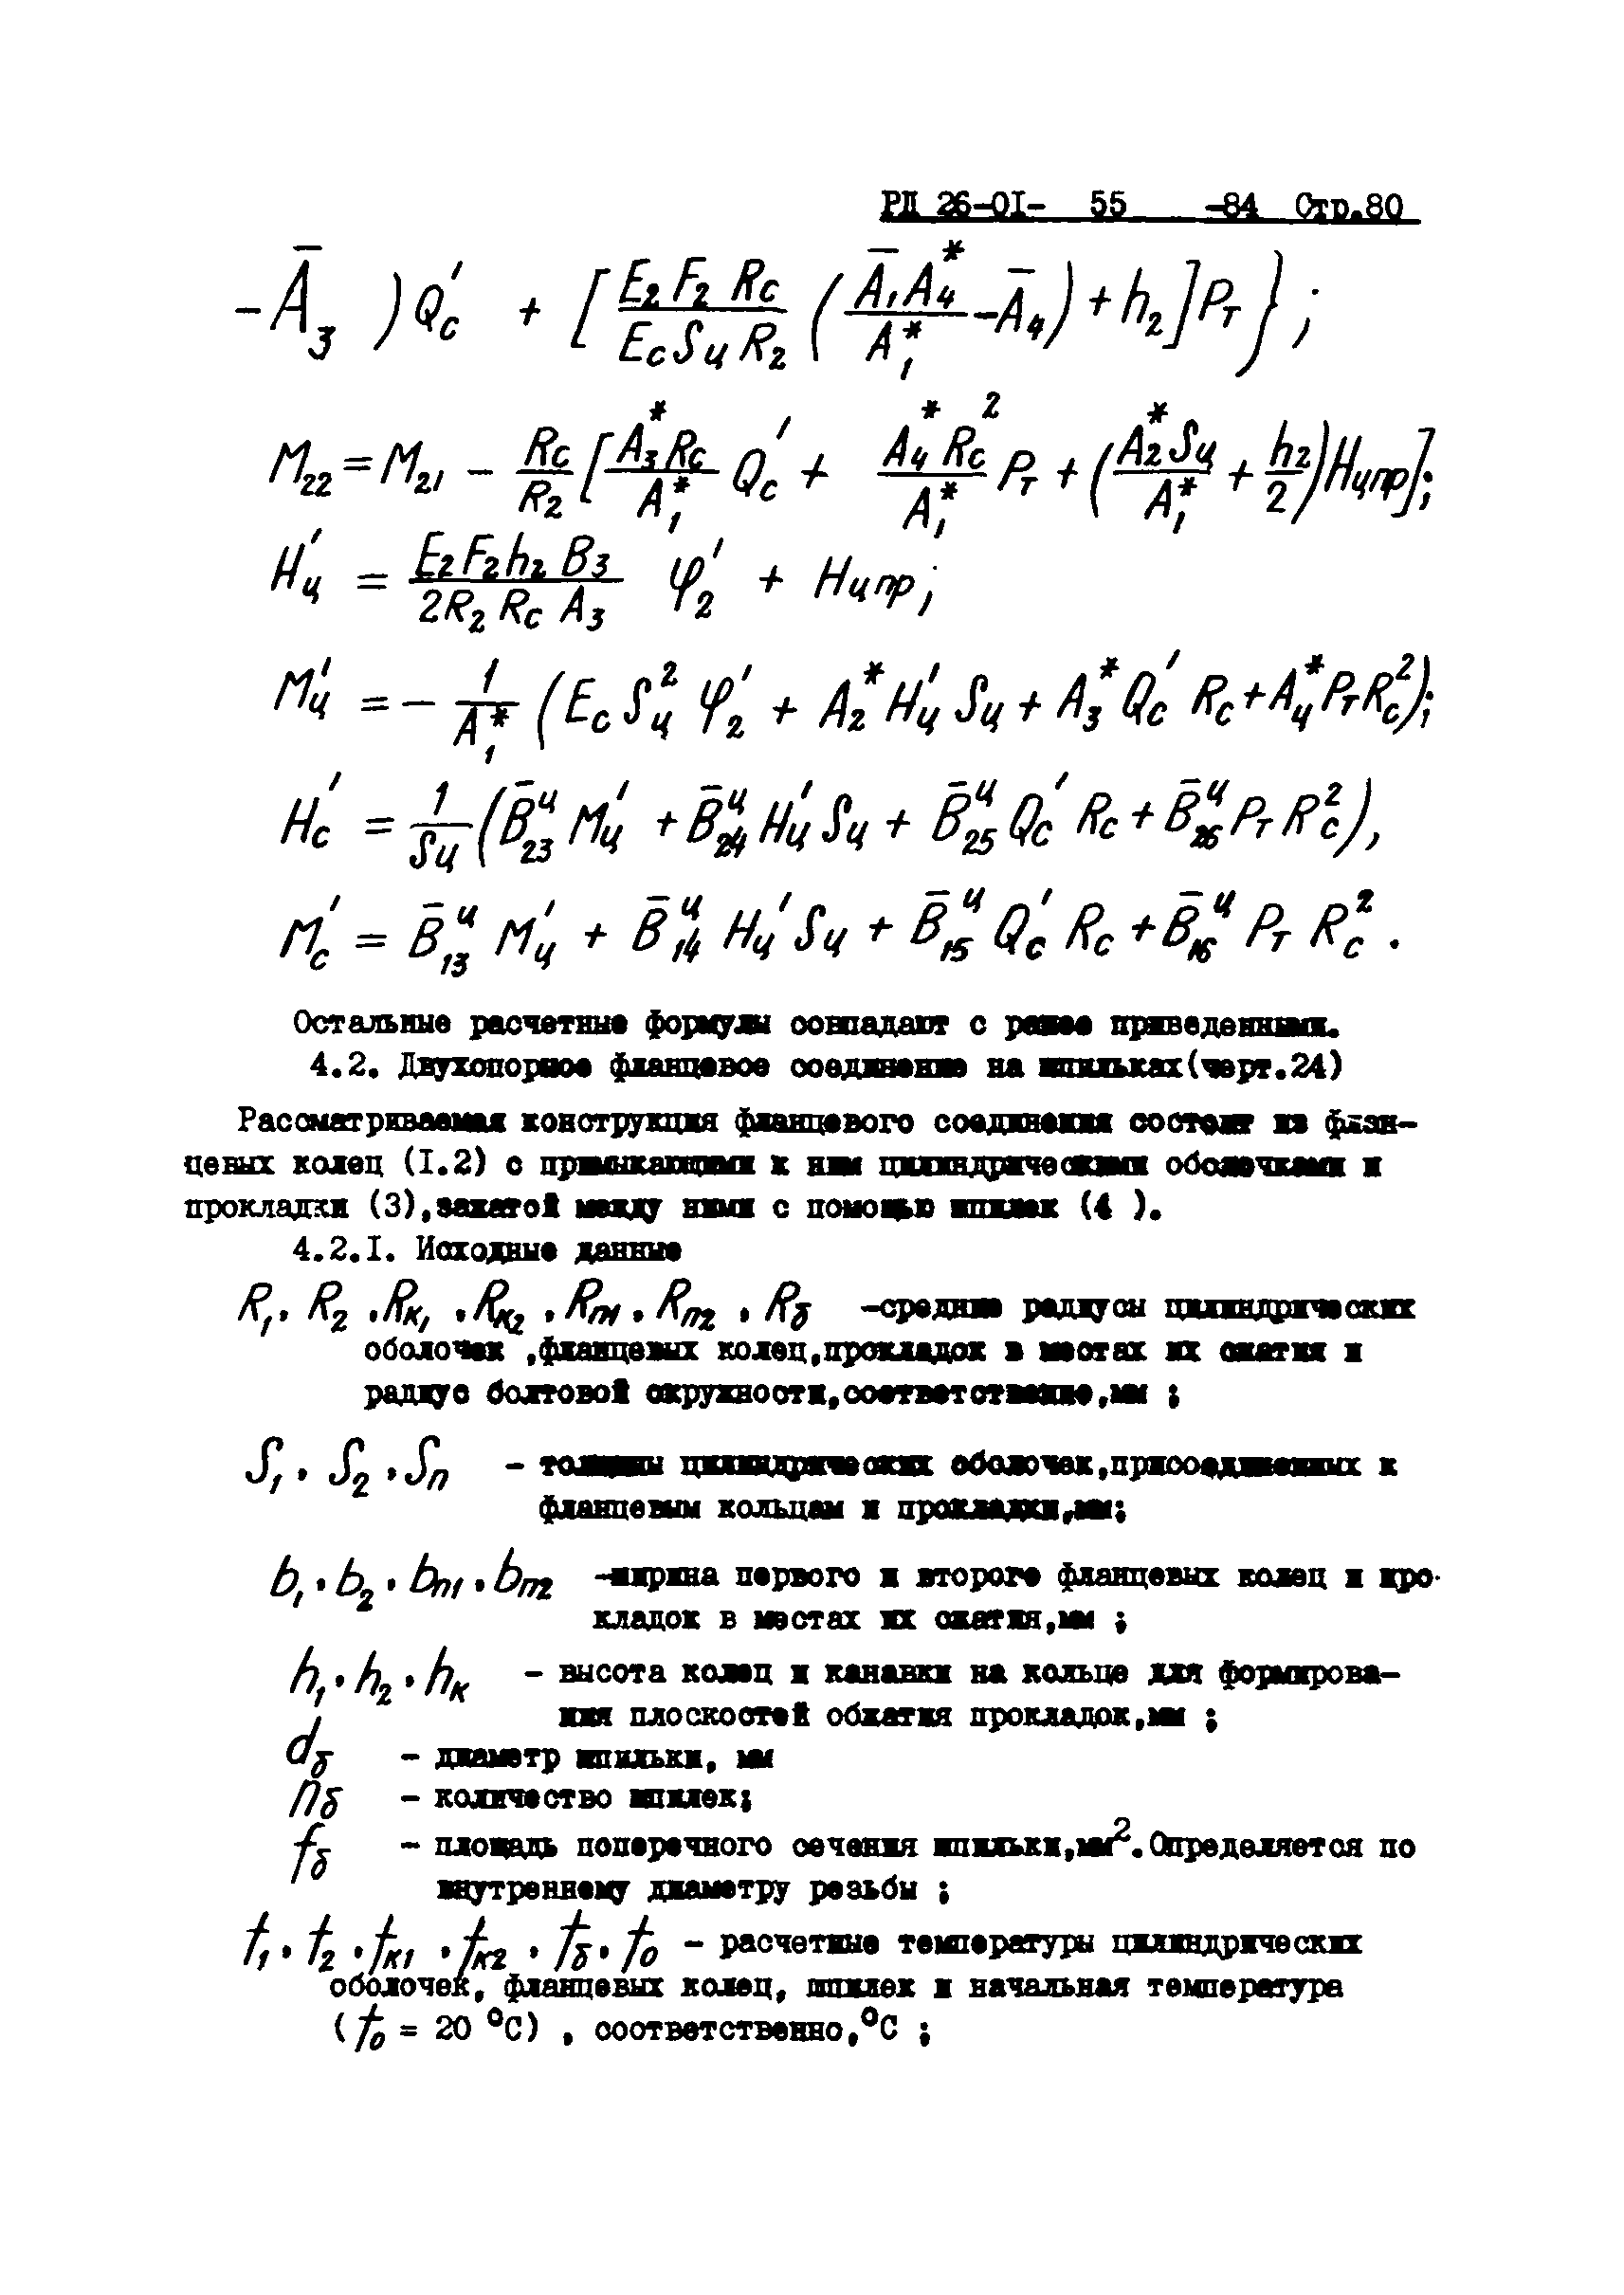 РД 26-01- 55 -84 Стр.80
-Ā₃ )Q′_c + [ E₂F₂R_c / E_cS_цR₂ ( Ā₁A₄* / A₁* - Ā₄) + h₂]P_т} ;
M₂₂ = M₂₁ - R_c/R₂ [ A₃*R_c / A₁* Q′_c + A₄*R_c² / A₁* P_т + ( A₂*S_ц / A₁* + h₂/2 )H_цпр];
H′_ц = E₂F₂h₂B₃ / 2R₂R_cA₃ φ′₂ + H_цпр;
M′_ц = - 1/A₁* (E_c S_ц² φ′₂ + A₂* H′_ц S_ц + A₃* Q′_c R_c + A₄* P_т R_c²);
H′_c = 1/S_ц (B̄₂₃^ц M′_ц + B̄₂₄^ц H′_ц S_ц + B̄₂₅^ц Q′_c R_c + B̄₂₆^ц P_т R_c²),
M′_c = B̄₁₃^ц M′_ц + B̄₁₄^ц H′_ц S_ц + B̄₁₅^ц Q′_c R_c + B̄₁₆^ц P_т R_c² .
Остальные расчетные формулы совпадают с ранее приведенными.
4.2. Двухопорное фланцевое соединение на шпильках(черт.24)
Рассматриваемая конструкция фланцевого соединения состоит из флан-
цевых колец (I.2) с примыкающими к ним цилиндрическими оболочками и
прокладки (3),зажатой между ними с помощью шпилек (4 ).
4.2.I. Исходные данные
R₁, R₂ ,R_к₁ ,R_к₂ ,R_п1 ,R_п2 , R_б -средние радиусы цилиндрических
оболочек ,фланцевых колец,прокладок в местах их сжатия и
радиус болтовой окружности,соответственно,мм ;
S₁, S₂ ,S_п - толщины цилиндрических оболочек,присоединенных к
фланцевым кольцам и прокладки,мм;
b₁, b₂, b_п1, b_п2 -ширина первого и второго фланцевых колец и про-
кладок в местах их сжатия,мм ;
h₁, h₂, h_к - высота колец и канавки на кольце для формирова-
ния плоскостей обжатия прокладок,мм ;
d_б - диаметр шпильки, мм
n_б - количество шпилек;
f_б - площадь поперечного сечения шпильки,мм².Определяется по
внутреннему диаметру резьбы ;
t₁, t₂ ,t_к1 ,t_к2 , t_б, t₀ - расчетные температуры цилиндрических
оболочек, фланцевых колец, шпилек и начальная температура
( t₀ = 20 °С) , соответственно,°С ;